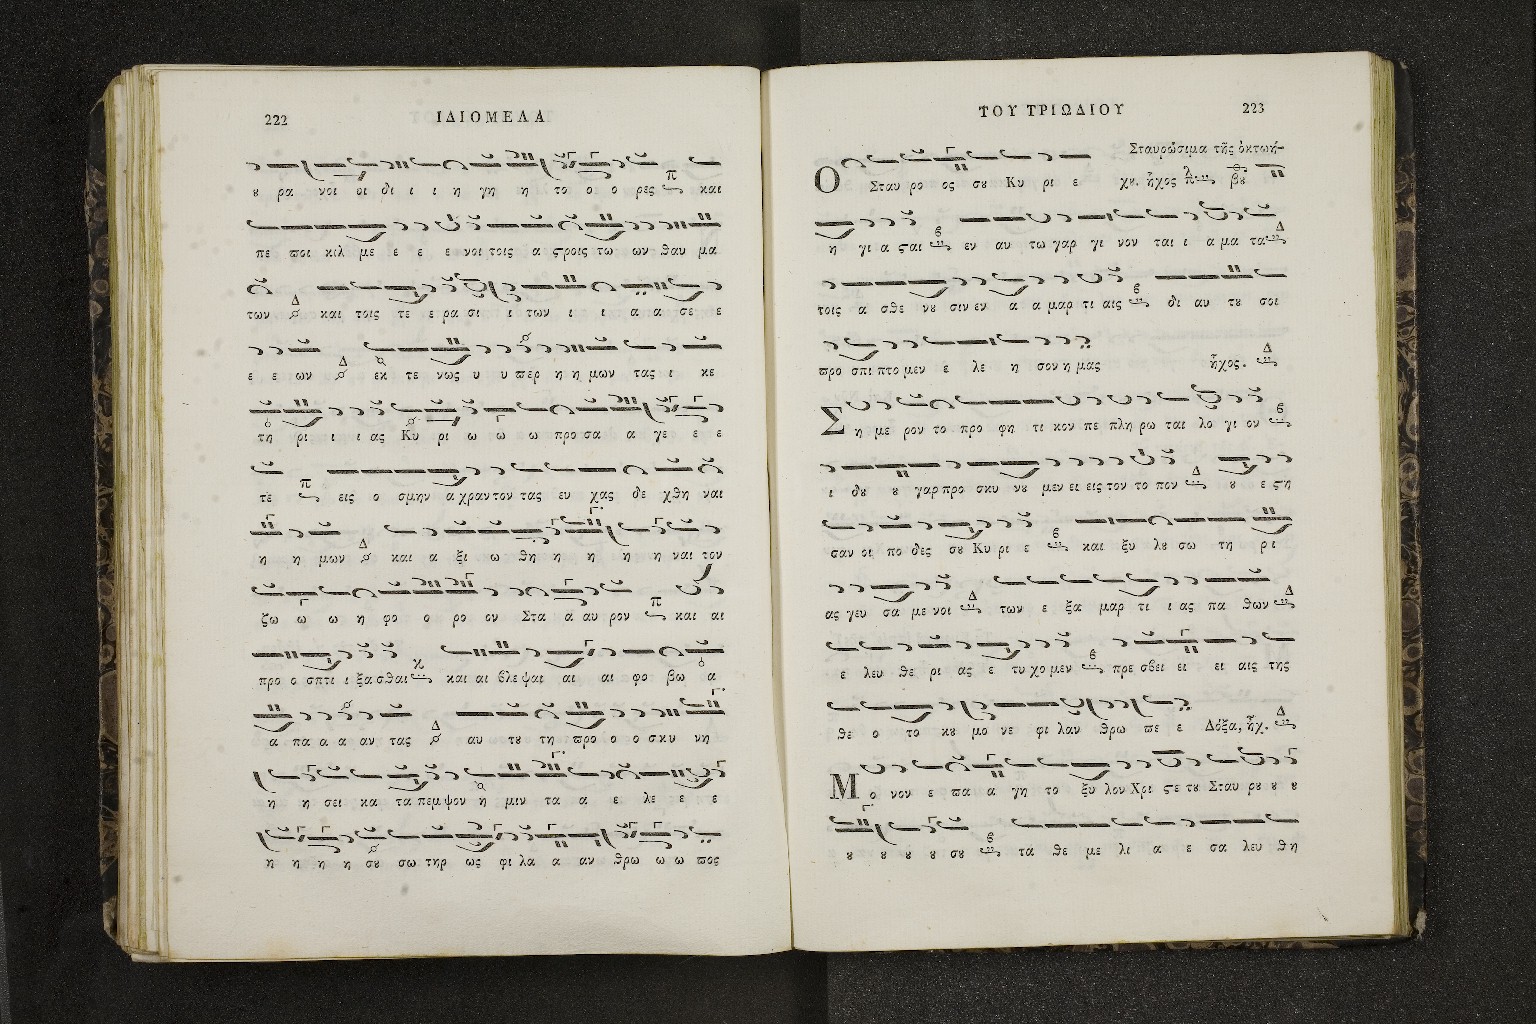 222 ΙΔΙΟΜΕΛΑ
ȣ ρα νοι οι δι ι ι η γη η το ο ο ρες και
πε ποι κιλ με ε ε ε νοι τοις α ϛροις τω ων θαυ μα
των και τοις τε ε ρα σι ι των ι ι α α σε ε
ε ε ων εκ τε νως υ υ περ η η μων τας ι κε
τη ρι ι ι ας Κυ ρι ω ω ω προ σα α γε ε ε
τε εις ο σμην α χραν τον τας ευ χας δε χθη ναι
η η μων και α ξι ω θη η η η η ναι τον
ζω ω ω η φο ο ρο ον Στα α αυ ρον και αι
προ ο σπτι ι ξα σθαι και αι βλε ψαι αι αι φο βω α
α πα α α αν τας αυ τȣ τη προ ο ο σκυ νη
η η σει κα τα πεμ ψον η μιν τα α ε λε ε ε
η η η η σȣ σω τηρ ως φι λα α αν θρω ω ω πος
ΤΟΥ ΤΡΙΩΔΙΟΥ 223
Σταυρώσιμα τῆς ὀκτωή-
Ο Σταυ ρο ος σȣ Κυ ρι ε χȣ. ἦχος
η γι α ϛαι εν αυ τω γαρ γι νον ται ι α μα τα
τοις α σθε νȣ σιν εν α α μαρ τι αις δι αυ τȣ σοι
προ σπι πτο μεν ε λε η σον η μας ἦχος.
Σ η με ρον το προ φη τι κον πε πλη ρω ται λο γι ον
ι δȣ ȣ γαρ προ σκυ νȣ μεν ει εις τον το πον ȣ ε ϛη
σαν οι πο δες σȣ Κυ ρι ε και ξυ λȣ σω τη ρι
ας γευ σα με νοι των ε ξα μαρ τι ι ας πα θων
ε λευ θε ρι ας ε τυ χο μεν πρε σβει ει ει αις της
θε ο το κȣ μο νε φι λαν θρω πε ε Δόξα, ἦχ.
Μ ο νον ε πα α γη το ξυ λον Χρι ϛε τȣ Σταυ ρȣ ȣ ȣ
ȣ ȣ ȣ ȣ σȣ τα θε με λι α ε σα λευ θη